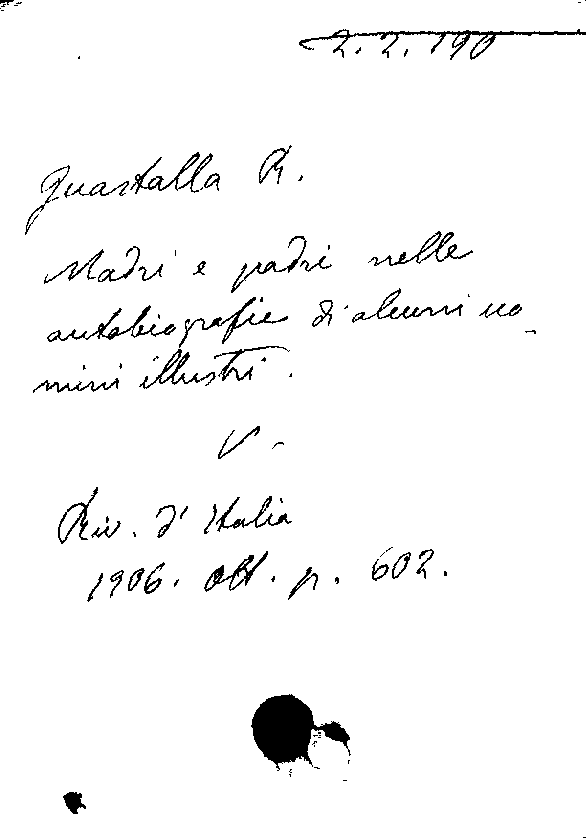 2. 2. 190
Guastalla R.
Madri e padri nelle
autobiografie di alcuni uo-
mini illustri.
V -
Riv. d' Italia
1906. ott. p. 602.